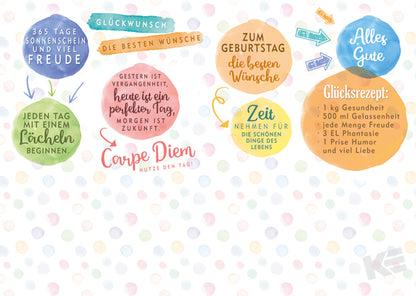 365 TAGE
SONNENSCHEIN
UND VIEL
FREUDE
GLÜCKWUNSCH
DIE BESTEN WÜNSCHE
GESTERN IST
VERGANGENHEIT,
heute ist ein
perfekter Tag,
MORGEN IST
ZUKUNFT.
JEDEN TAG
MIT EINEM
Lächeln
BEGINNEN.
Carpe Diem
NUTZE DEN TAG!
ZUM
GEBURTSTAG
die besten
Wünsche
Zeit
NEHMEN FÜR
DIE SCHÖNEN
DINGE DES
LEBENS
Alles
Gute
Glücksrezept:
· 1 kg Gesundheit
· 500 ml Gelassenheit
· jede Menge Freude
· 3 EL Phantasie
· 1 Prise Humor
und viel Liebe
KE